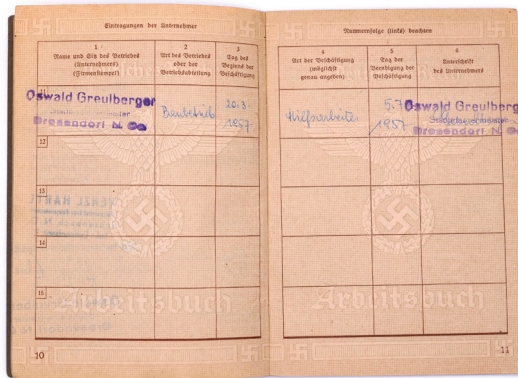 Eintragungen der Unternehmer
1
Name und Sitz des Betriebes
(Unternehmers)
(Firmenstempel)
2
Art des Betriebes
oder der
Betriebsabteilung
3
Tag des
Beginns der
Beschäftigung
Oswald Greulberger
Dresendorf N.
Baubetrieb
20.3.
1957
12
13
14
15
Arbeitsbuch
10
Nummernfolge (links) beachten
4
Art der Beschäftigung
(möglichst
genau angeben)
5
Tag der
Beendigung der
Beschäftigung
6
Unterschrift
des Unternehmers
Hilfsarbeiter
5.7
1957
Oswald Greulberg
Dresendorf N.
Arbeitsbuch
11